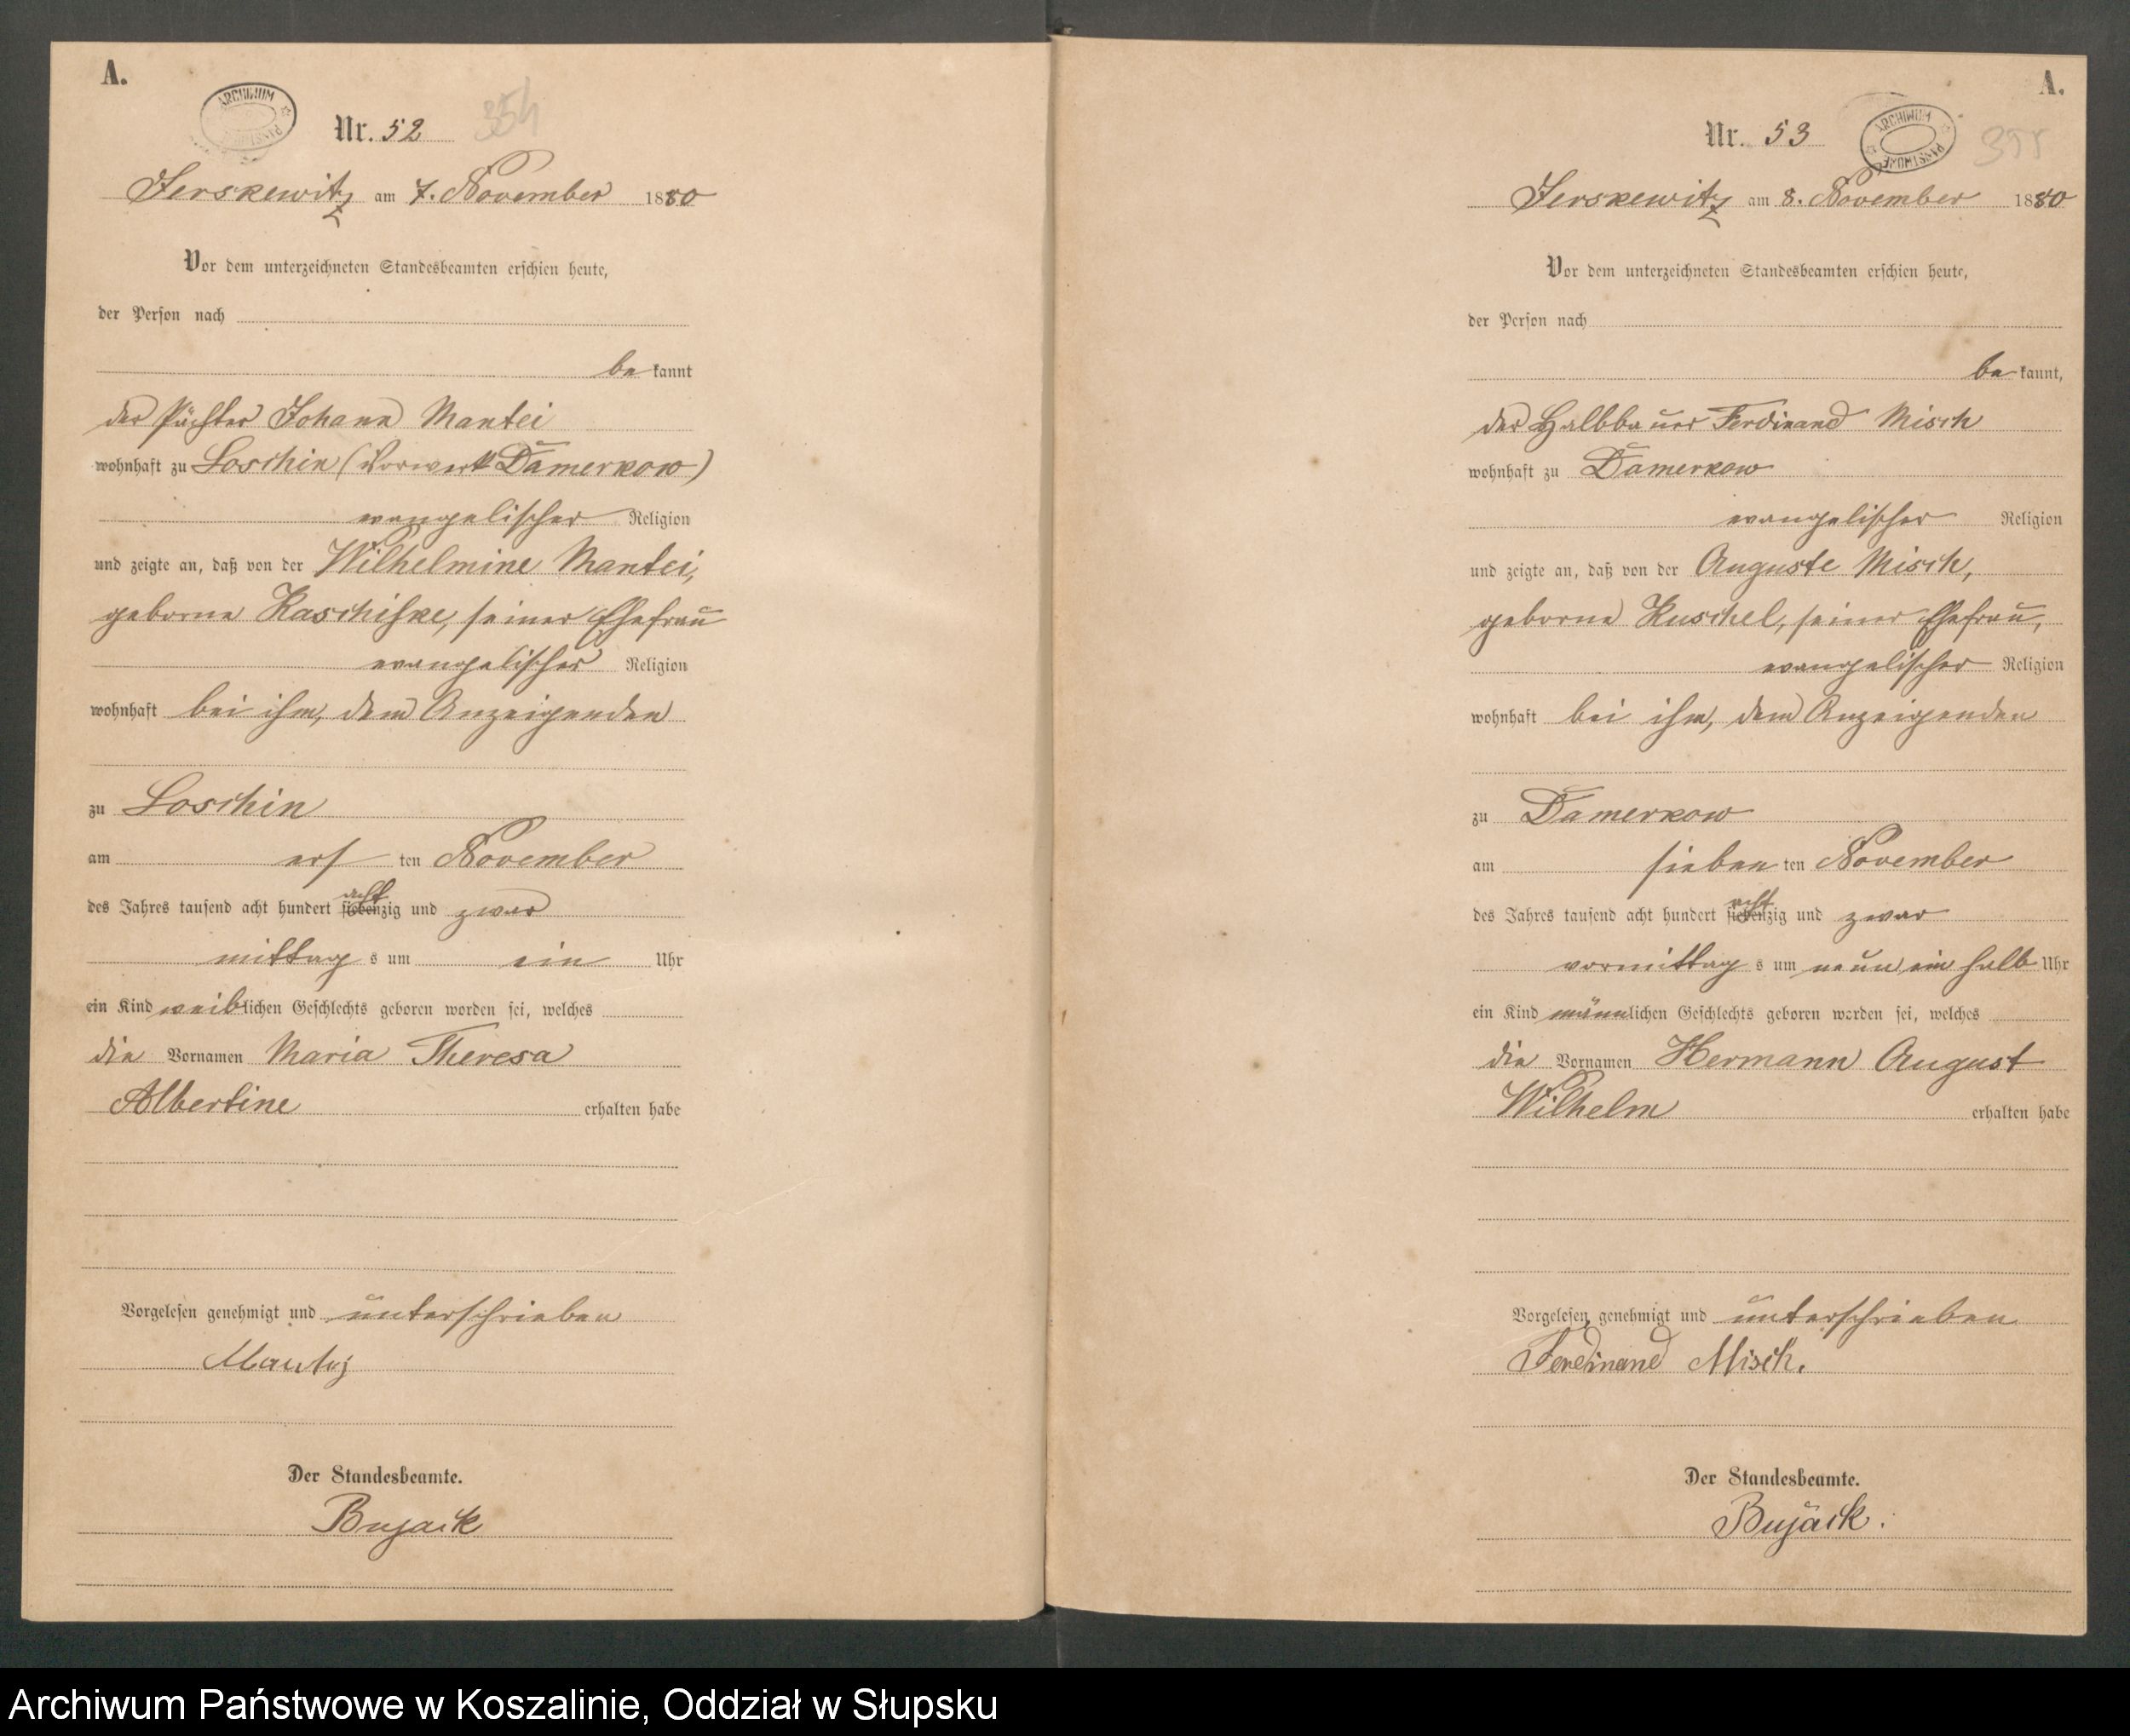 A.
ARCHIWUM PAŃSTWOWE
Nr. 52 354
Jerskewitz am 7. November 1880
Vor dem unterzeichneten Standesbeamten erschien heute,
der Person nach
be kannt
der Pächter Johann Mantei
wohnhaft zu Loschin (Vorwerk Damerkow)
evangelischer Religion
und zeigte an, daß von der Wilhelmine Mantei,
geborne Raschiske, seiner Ehefrau
evangelischer Religion
wohnhaft bei ihm, dem Anzeigenden
zu Loschin
am ers ten November
acht
des Jahres tausend acht hundert siebenzig und zwar
mittag s um ein Uhr
ein Kind weiblichen Geschlechts geboren worden sei, welches
die Vornamen Maria Theresa
Albertine erhalten habe
Vorgelesen genehmigt und unterschrieben
Mantej
Der Standesbeamte.
Bujack
A.
ARCHIWUM PAŃSTWOWE
Nr. 53 355
Jerskewitz am 8. November 1880
Vor dem unterzeichneten Standesbeamten erschien heute,
der Person nach
be kannt,
der Halbbauer Ferdinand Misch
wohnhaft zu Damerkow
evangelischer Religion
und zeigte an, daß von der Auguste Misch,
geborne Kuschel, seiner Ehefrau,
evangelischer Religion
wohnhaft bei ihm, dem Anzeigenden
zu Damerkow
am sieben ten November
acht
des Jahres tausend acht hundert siebenzig und zwar
vormittag s um neun ein halb Uhr
ein Kind männlichen Geschlechts geboren worden sei, welches
die Vornamen Hermann August
Wilhelm erhalten habe
Vorgelesen genehmigt und unterschrieben
Ferdinand Misch.
Der Standesbeamte.
Bujack.
Archiwum Państwowe w Koszalinie, Oddział w Słupsku